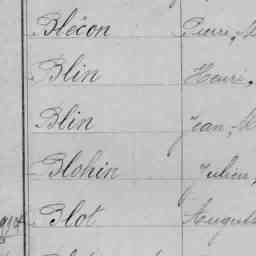 Blécon Pierre, M
Blin Henri,
Blin Jean, M
Blohin Julien,
Blot August